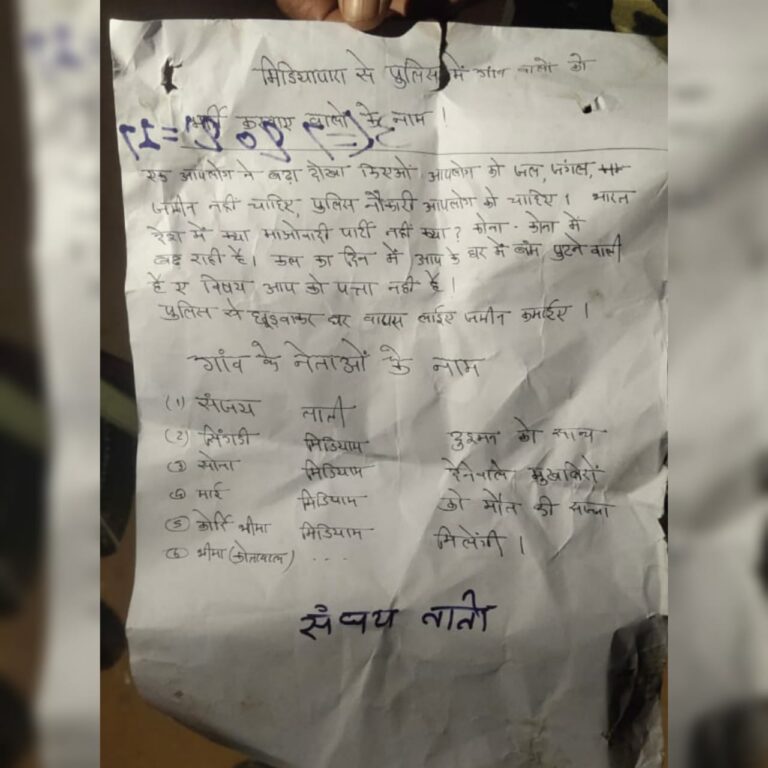 मिडियापारा से पुलिस में गांव वालो को
भर्ती करवाए वालो के नाम ।
एक आपलोग ने बढ़ा दोखा किएओं आपलोग को जल, जंगल,
जमीन नही चाहिए, पुलिस नौकरी आपलोग को चाहिए । भारत
देश में क्या माओवादी पार्टी नही क्या? कोना-कोना में
बढ़ राही है। कल का दिन में आप के घर में बम पुटने वाली
है ए विषय आप को पत्ता नही है ।
पुलिस से छुड़वाकर घर वापस लाईए जमीन कमाईए ।
गांव के नेताओं के नाम
(1) संजय ताती
(2) लिंगडी मिडियाम
(3) सोना मिडियाम
(4) माई मिडियाम
(5) कोर्दि भीमा मिडियाम
(6) भीमा (कोतवाल) ....
दुश्मन को साथ
देनेवाले मुखबिरों
को मौत की सज्जा
मिलेंगी ।
संजय ताती